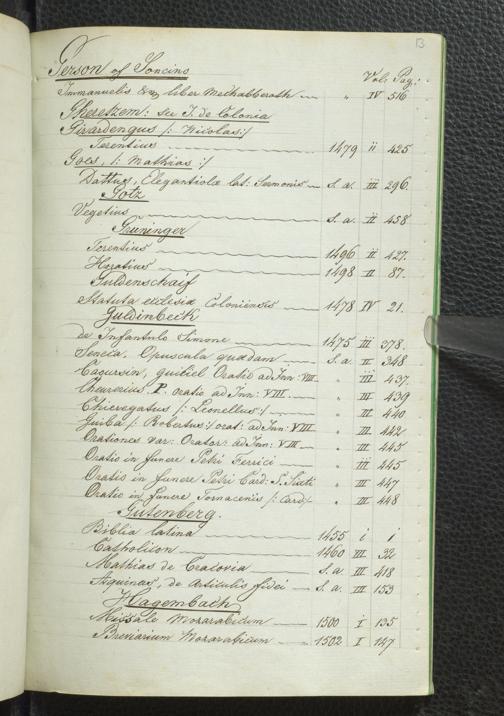 13
Gerson of Soncino
Vol: Pag:
Immanuelis liber Mechabberoth — " IV 516
Gheretzem: see J. de Colonia
Girardengus /: Nicolas:/
Terentius — 1479 ii 425
Goes, /: Mathias :/
Dattus, Elegantiolæ lat: Sermonis — S. a. III 296.
Gotz
Vegetius — S. a. II 458
Gruninger
Terentius — 1496 II 427.
Horatius — 1498 II 87.
Guldenschaif
Statuta ecclesiæ Coloniensis — 1478 IV 21.
Guldinbeck
de Infantulo Simone — 1475 III 378.
Seneca, Opuscula quædam — S. a. II 348
Caoursin, guiliel Oratio ad Inn: VIII — " III 437.
Cheurerius. P. oratio ad Inn: VIII — " III 439
Chieregatus /: Leonellus :/ — " III 440
Guiba /: Robertus :/ orat: ad Inn: VIII — " III 442
Orationes var: Orator: ad Inn: VIII — " III 443
Oratio in funere Petri Ferrici — " III 445
Oratio in funere Petri Card: S. Sixti " III 447
Oratio in funere Tornacenis /: Card:/ " III 448
Gutenberg.
Biblia latina — 1455 i 1
Catholicon — 1460 III 32
Mathias de Cracovia — S. a. III 418
Aquinas, de Articulis fidei — S. a. III 153
Hagembach
Missale Mozarabicum — 1500 i 135
Breviarium Mozarabicum — 1502 I 147